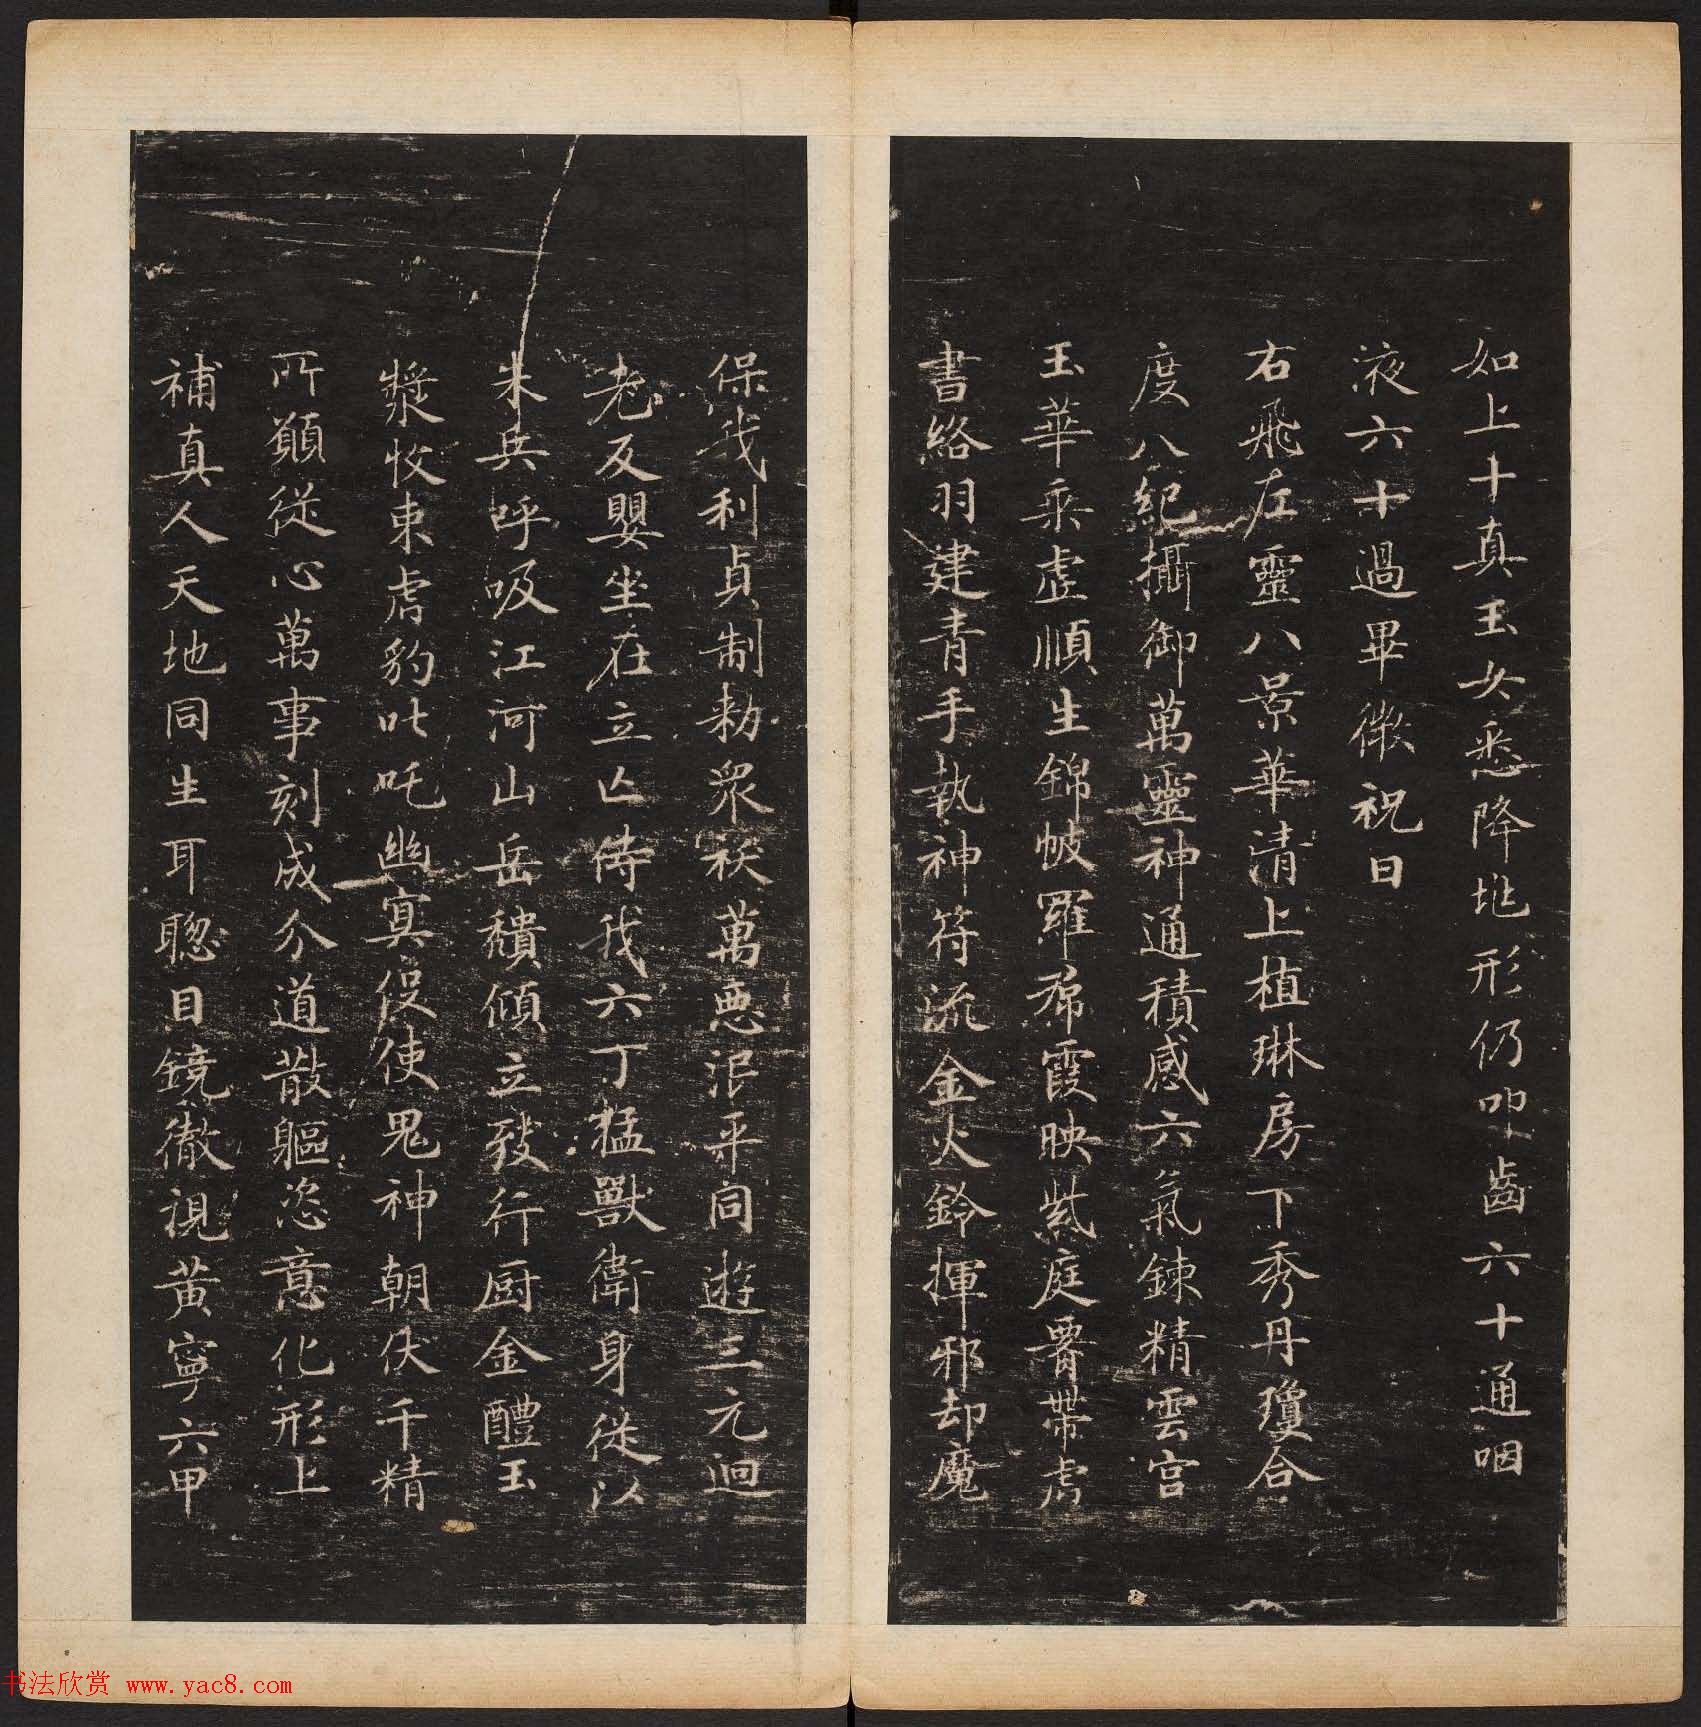 如上十真玉女悉降地形仍叩齒六十通咽
液六十過畢微祝曰
右飛左靈八景華清上植琳房下秀丹瓊合
度八紀攝御萬靈神通積感六氣鍊精雲宮
玉華乘虛順生錦帔羅帬霞映紫庭腎帶虎
書絡羽建青手執神符流金火鈴揮邪却魔
保我利貞制勑眾祅萬惡泯平同遊三元迴
老反嬰坐在立亾侍我六丁猛獸衛身從以
朱兵呼吸江河山岳穨傾立致行厨金醴玉
漿收束虎豹叱吒幽冥役使鬼神朝伏千精
所願從心萬事剋成分道散軀恣意化形上
補真人天地同生耳聰目鏡徹視黃寧六甲
书法欣赏 www.yac8.com